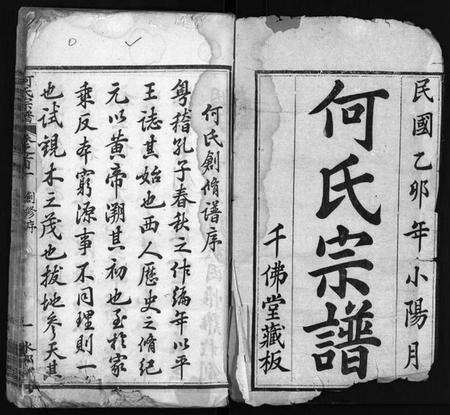 民國乙卯年小陽月
何氏宗譜
千佛堂藏板
何氏創脩譜序
粵稽孔子春秋之作編年以平
王誌其始也西人歷史之脩紀
元以黃帝溯其初也至於家
乘反本窮源事不同理則一
也試觀木之茂也拔地參天其
何氏宗譜
卷首
創修序
一